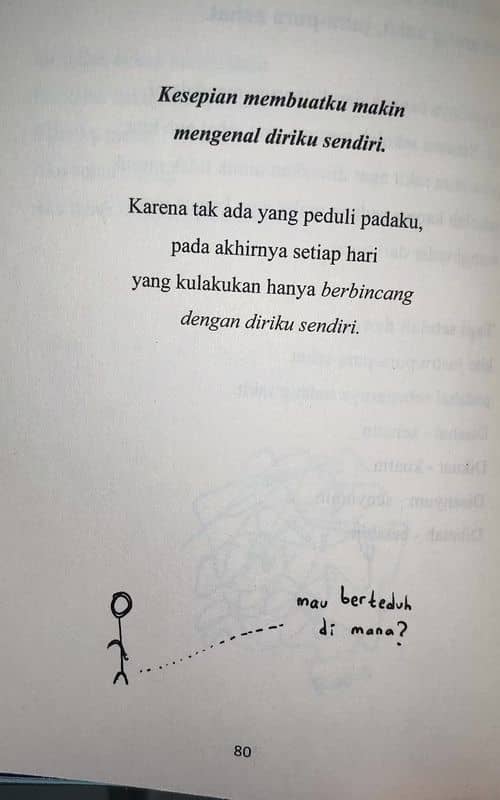 Kesepian membuatku makin
mengenal diriku sendiri.
Karena tak ada yang peduli padaku,
pada akhirnya setiap hari
yang kulakukan hanya berbincang
dengan diriku sendiri.
mau berteduh
di mana?
80